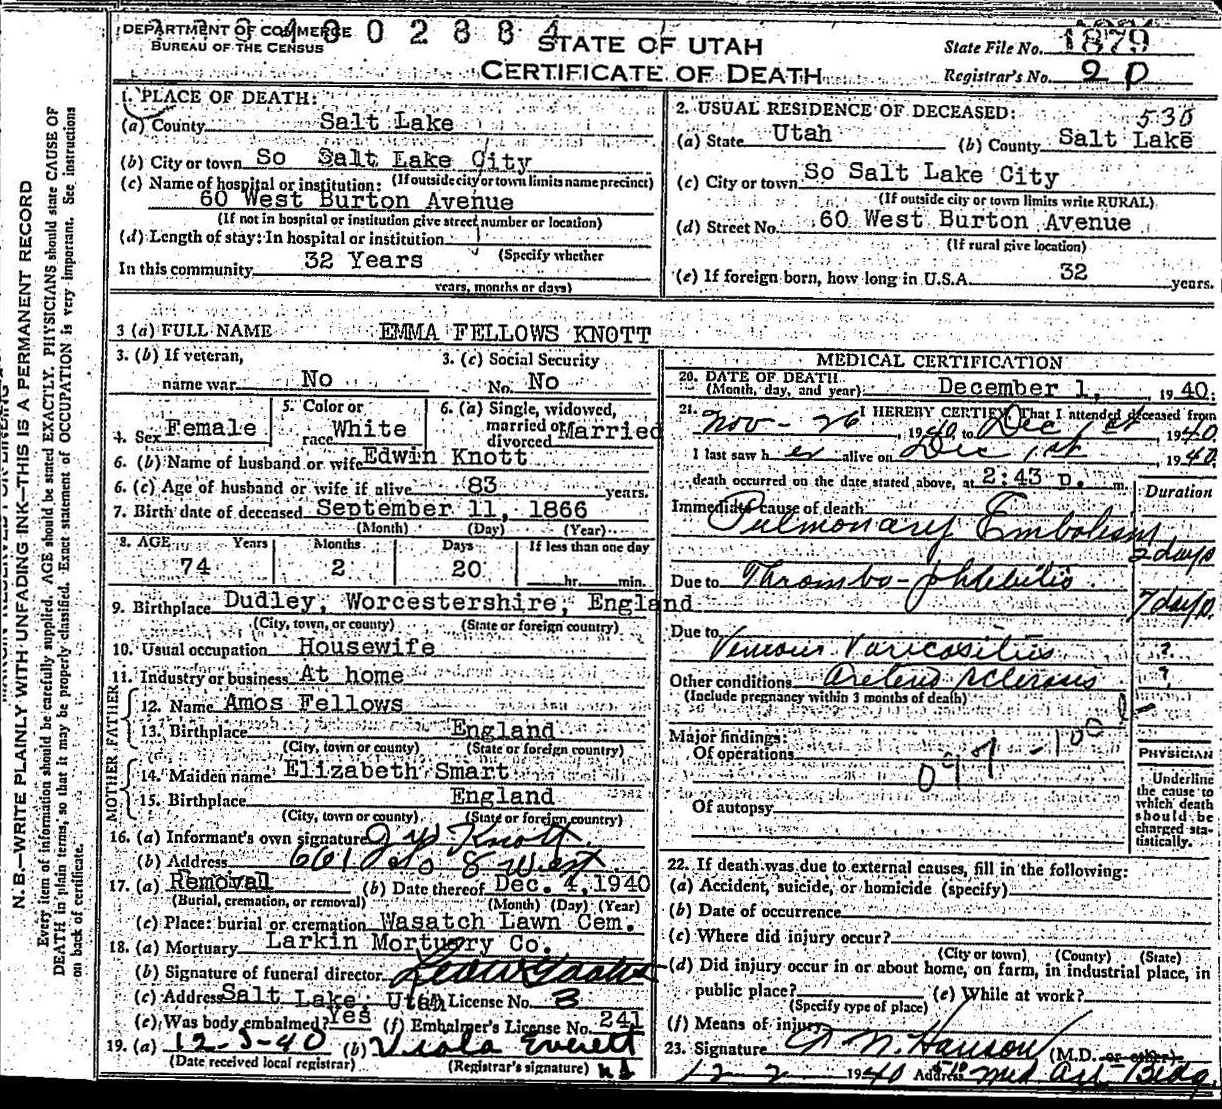 DEPARTMENT OF COMMERCE
BUREAU OF THE CENSUS
STATE OF UTAH
CERTIFICATE OF DEATH
State File No. 1879
Registrar's No. 90
1. PLACE OF DEATH:
(a) County Salt Lake
(b) City or town So Salt Lake City
(If outside city or town limits name precinct)
(c) Name of hospital or institution:
60 West Burton Avenue
(If not in hospital or institution give street number or location)
(d) Length of stay: In hospital or institution
(Specify whether
In this community 32 Years
years, months or days)
2. USUAL RESIDENCE OF DECEASED: 530
(a) State Utah (b) County Salt Lake
(c) City or town So Salt Lake City
(If outside city or town limits write RURAL)
(d) Street No. 60 West Burton Avenue
(If rural give location)
(e) If foreign born, how long in U.S.A. 32 years.
3 (a) FULL NAME EMMA FELLOWS KNOTT
3. (b) If veteran, name war No
3. (c) Social Security No. No
4. Sex Female
5. Color or race White
6. (a) Single, widowed, married or divorced Married
6. (b) Name of husband or wife Edwin Knott
6. (c) Age of husband or wife if alive 83 years.
7. Birth date of deceased September 11, 1866
(Month) (Day) (Year)
8. AGE Years Months Days If less than one day
74 2 20 hr. min.
9. Birthplace Dudley, Worcestershire, England
(City, town, or county) (State or foreign country)
10. Usual occupation Housewife
11. Industry or business At home
FATHER
12. Name Amos Fellows
13. Birthplace England
(City, town or county) (State or foreign country)
MOTHER
14. Maiden name Elizabeth Smart
15. Birthplace England
(City, town or county) (State or foreign country)
16. (a) Informant's own signature J W Knott
(b) Address 661 So 8 West
17. (a) Removal (b) Date thereof Dec. 4, 1940
(Burial, cremation, or removal) (Month) (Day) (Year)
(c) Place: burial or cremation Wasatch Lawn Cem.
18. (a) Mortuary Larkin Mortuary Co.
(b) Signature of funeral director
(c) Address Salt Lake, Utah (d) License No. B
(e) Was body embalmed? Yes (f) Embalmer's License No. 241
19. (a) 12-3-40 (b) Viola Everett
(Date received local registrar) (Registrar's signature)
MEDICAL CERTIFICATION
20. DATE OF DEATH
(Month, day, and year) December 1, 1940.
21. I HEREBY CERTIFY, That I attended deceased from
Nov - 26, 1940 to Dec 1st, 1940
I last saw her alive on Dec 1st, 1940.
death occurred on the date stated above, at 2:43 p. m.
Duration
Immediate cause of death
Pulmonary Embolism 2 days
Due to Thrombo-phlebitis 7 days.
Due to Venous Varicosities ?
Other conditions Arterio sclerosis ?
(Include pregnancy within 3 months of death)
Major findings:
Of operations
Of autopsy
PHYSICIAN
Underline the cause to which death should be charged statistically.
22. If death was due to external causes, fill in the following:
(a) Accident, suicide, or homicide (specify)
(b) Date of occurrence
(c) Where did injury occur?
(City or town) (County) (State)
(d) Did injury occur in or about home, on farm, in industrial place, in
public place? (e) While at work?
(Specify type of place)
(f) Means of injury
23. Signature N. Hanson (M.D. or other)
12-2 1940 Address Med Arts Bldg.
N. B.—WRITE PLAINLY WITH UNFADING INK—THIS IS A PERMANENT RECORD
Every item of information should be carefully supplied. AGE should be stated EXACTLY. PHYSICIANS should state CAUSE OF
DEATH in plain terms, so that it may be properly classified. Exact statement of OCCUPATION is very important. See instructions
on back of certificate.